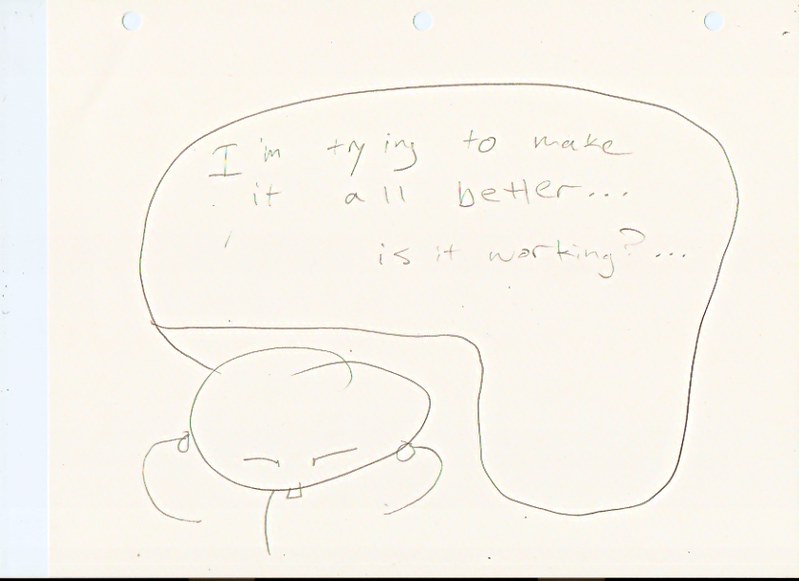 I'm trying to make
it all better...
is it working?...